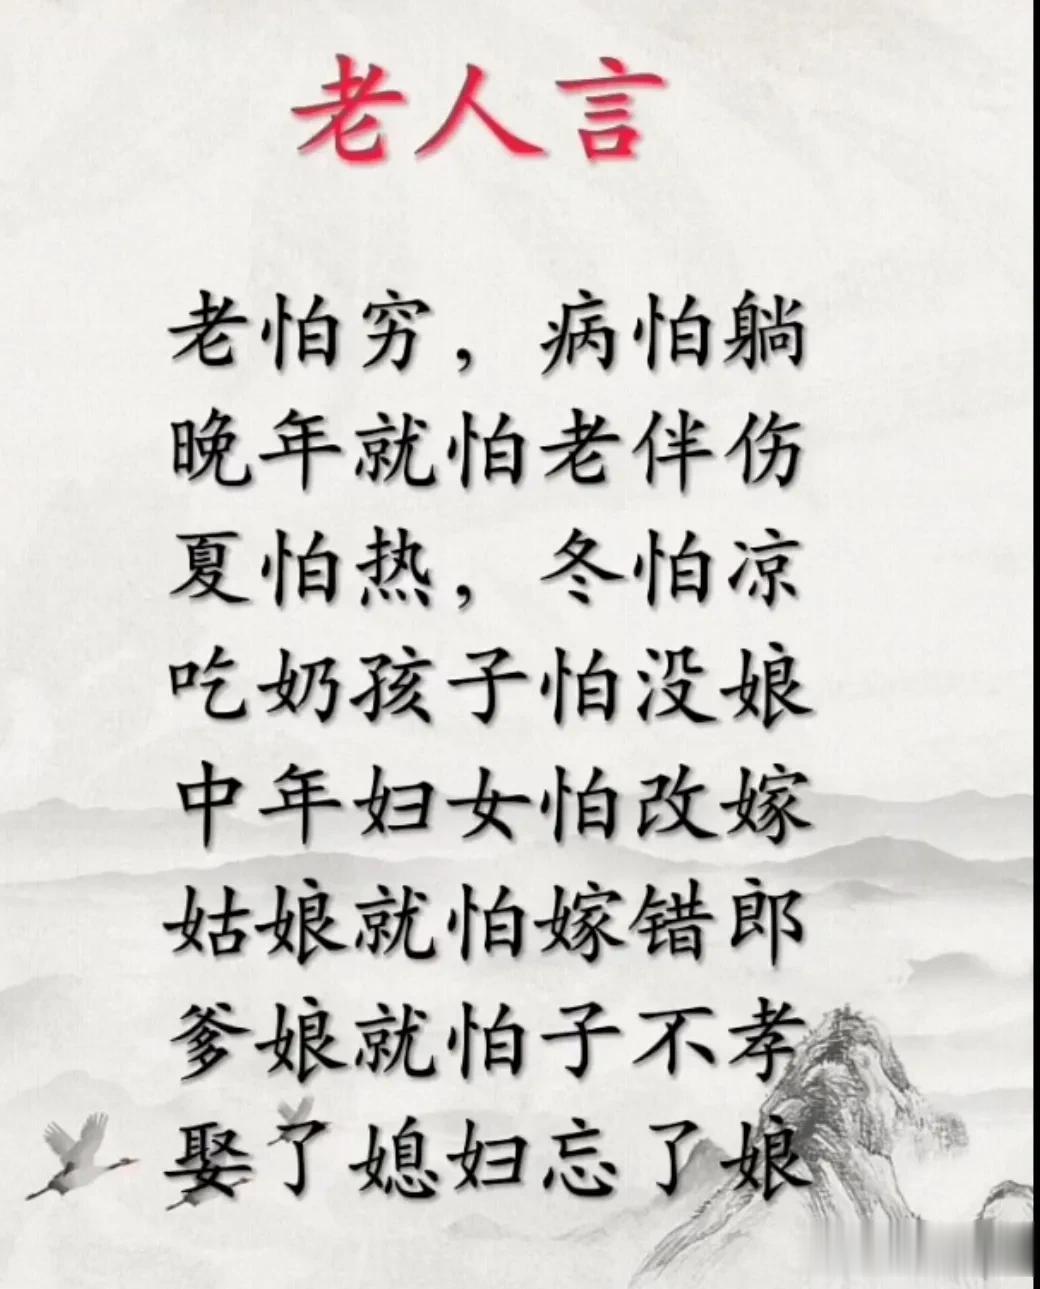 老人言
老怕穷，病怕躺
晚年就怕老伴伤
夏怕热，冬怕凉
吃奶孩子怕没娘
中年妇女怕改嫁
姑娘就怕嫁错郎
爹娘就怕子不孝
娶了媳妇忘了娘